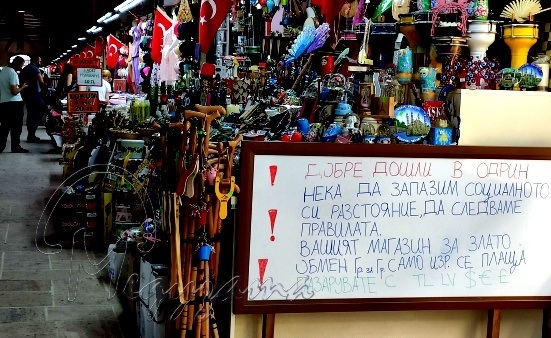 ДОБРЕ ДОШЛИ В ОДРИН
НЕКА ДА ЗАПАЗИМ СОЦИАЛНОТО
СИ РАЗСТОЯНИЕ, ДА СЛЕДВАМЕ
ПРАВИЛАТА.
ВАШИЯТ МАГАЗИН ЗА ЗЛАТО.
ОБМЕН Гр за Гр САМО ИЗР. СЕ ПЛАЩА
ПАЗАРУВАТЕ С TL LV $ € £